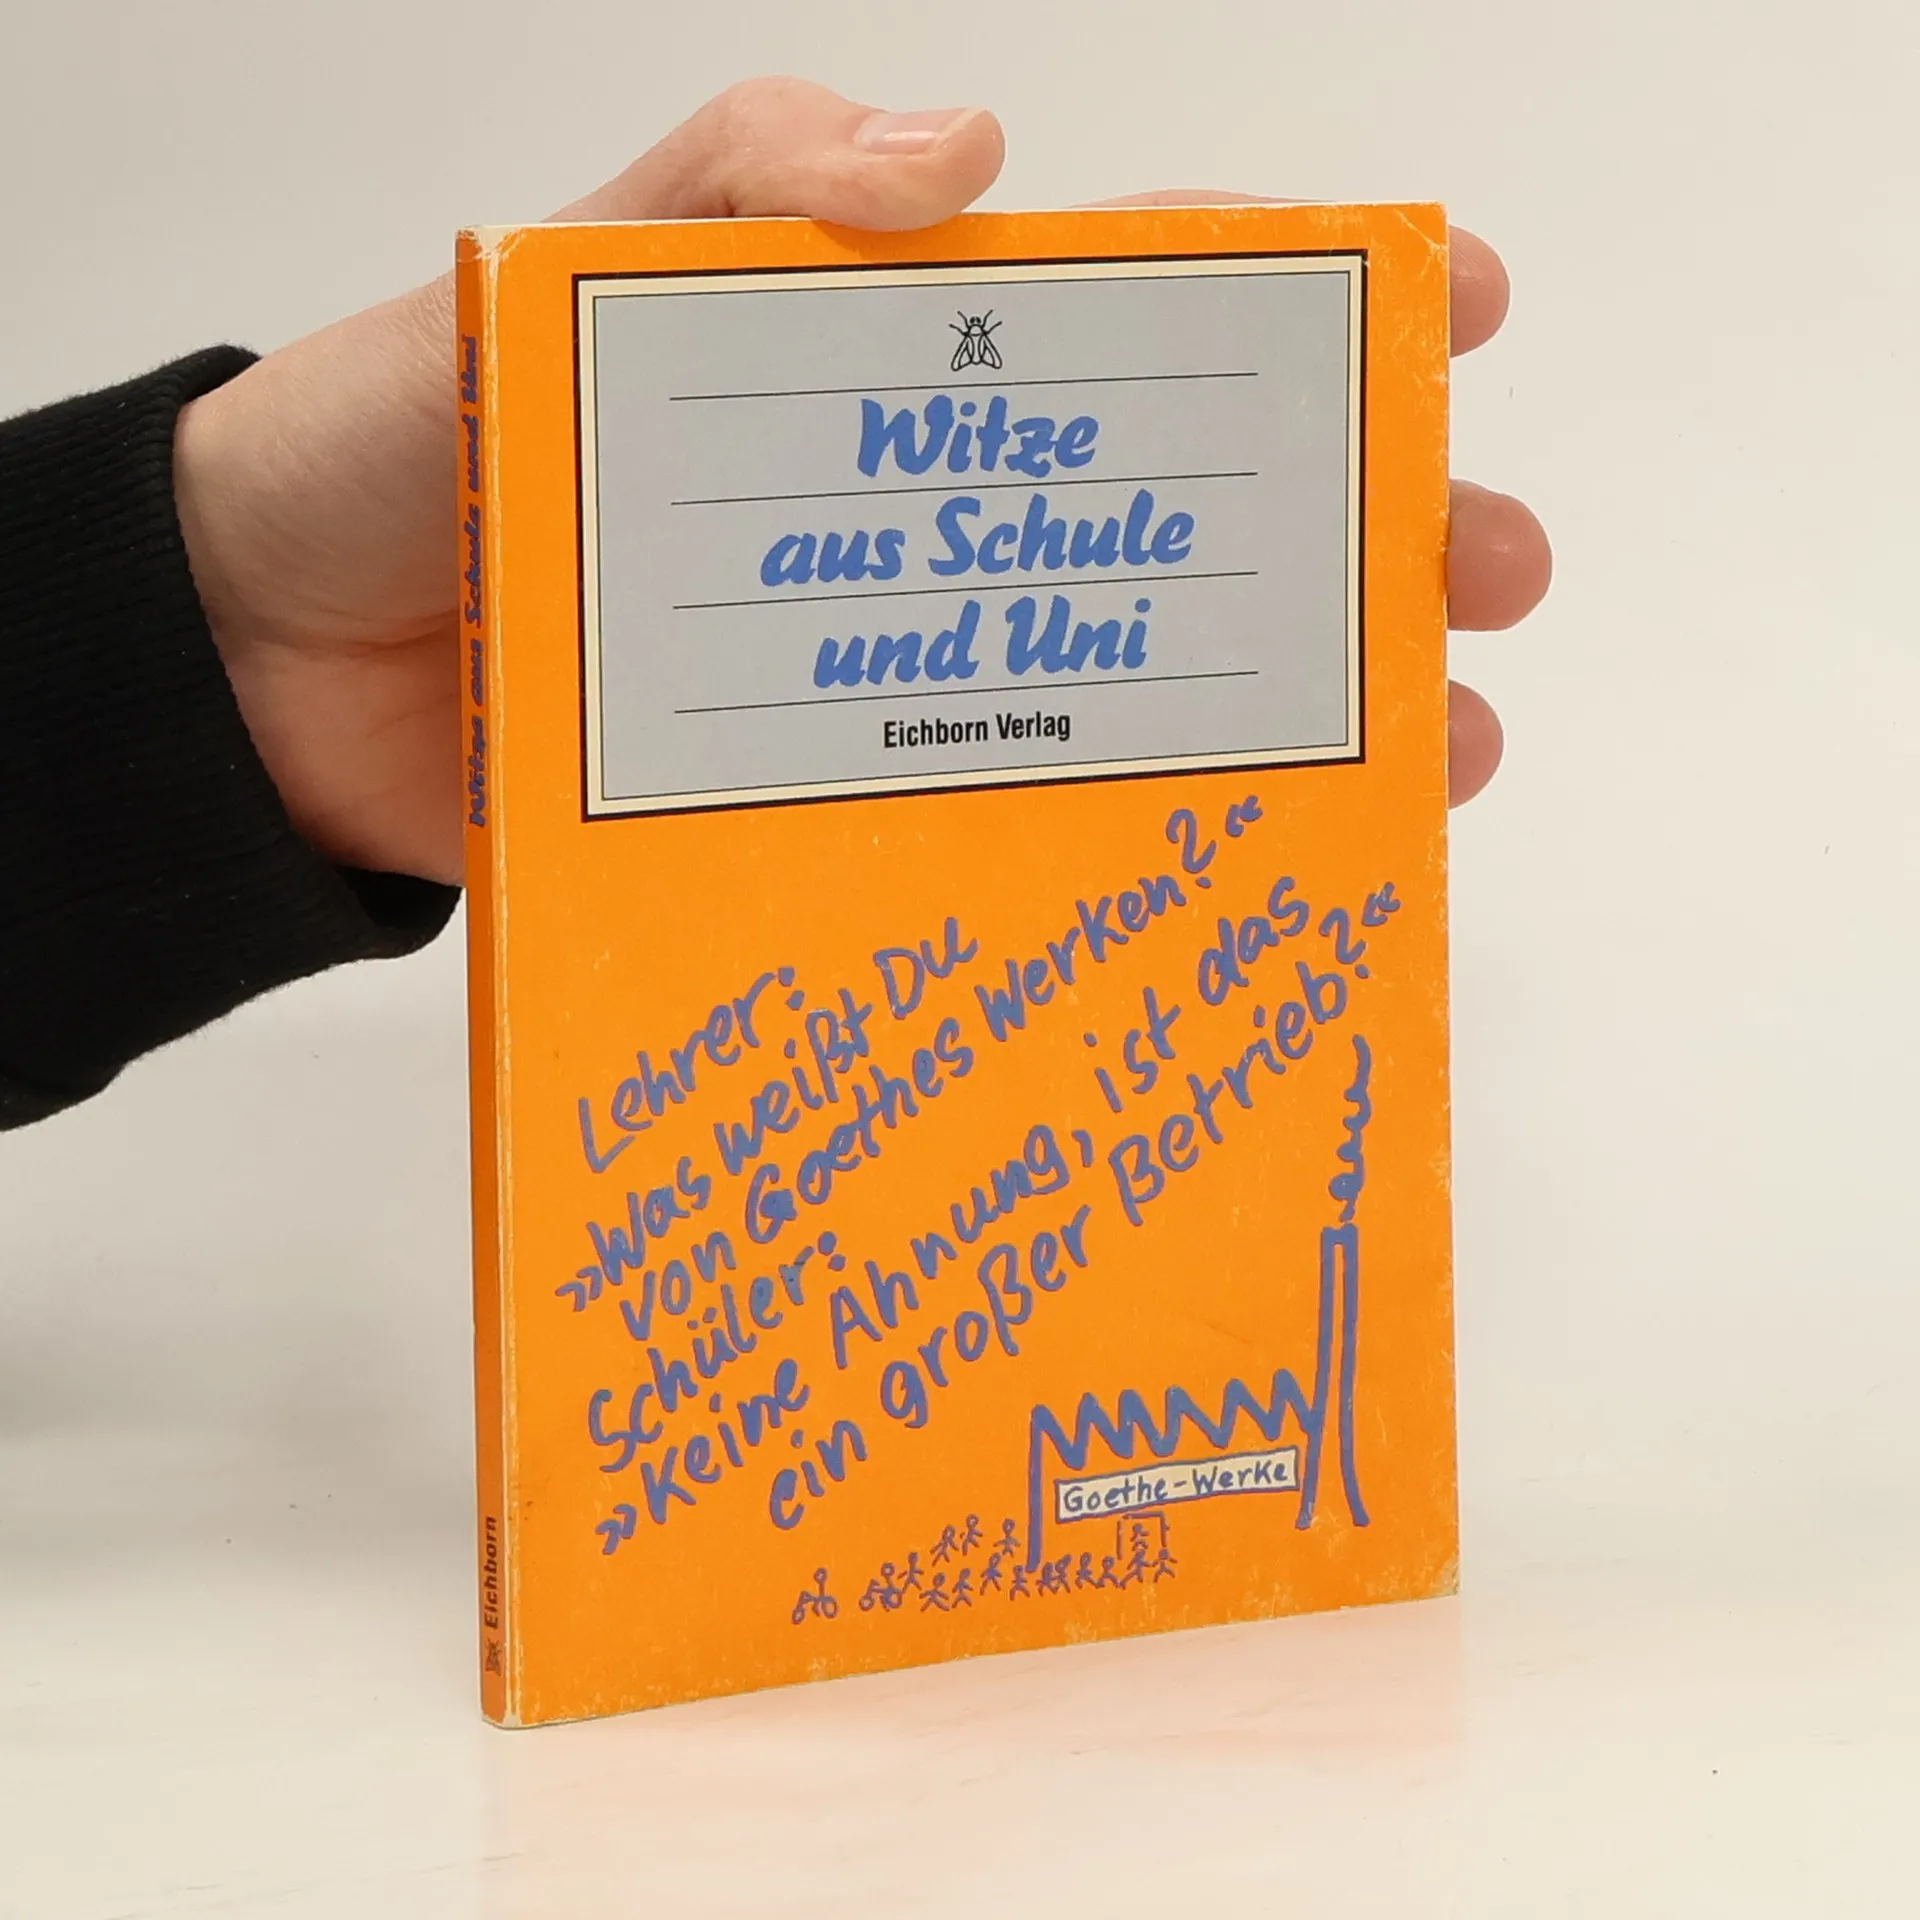 Witze
aus Schule
und Uni
Eichborn Verlag
Lehrer:
»Was weißt Du
von Goethes Werken?«
Schüler:
»Keine Ahnung, ist das
ein großer Betrieb?«
Goethe-Werke
Witze aus Schule und Uni
Eichborn